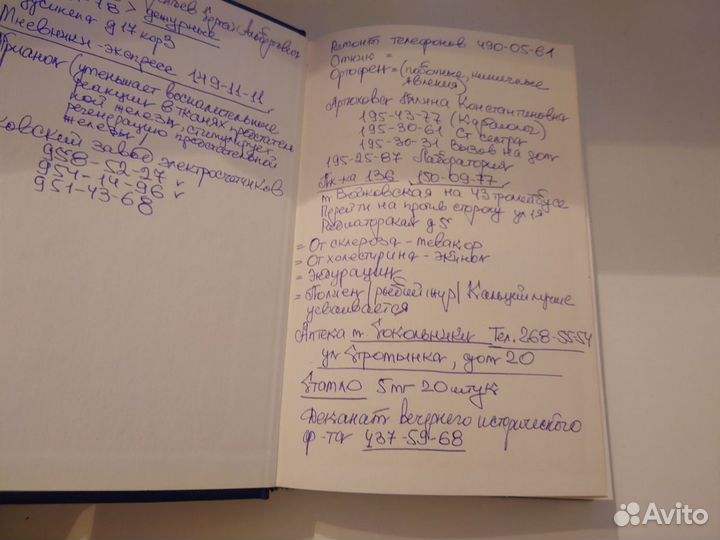 дежурные
д 17 кор 3
Мневники-экспресс 149-11-11
(уменьшает воспалительные
реакции в тканях предстатель
ной железы, стимулирует
регенерацию предстательной
железы)
завод электросчётчиков
958-52-27
954-14-96
951-43-68
Ремонт телефонов 490-05-61
Отник =
Ортофен = (побочные, кишечные
явления)
Артюхова Галина Константиновна
195-43-77 (Кардиолог)
195-30-61 Ст сестра
195-30-31 Вызов на дом
195-25-87 Лаборатория
136 150-09-77
м Войковская на 43 троллейбусе
Перейти на против сторону ул 1я
Радиаторская д 5
= От склероза - мевакор
= От холестирина - эйкнол
= Эндурацин
= Полиен /рыбий жир/ Кальций лучше
усваивается
Аптека м. Сокольники Тел. 268-55-54
ул Стромынка, дом 20
Стамло 5 мг 20 штук
Деканат вечернего исторического
ф-та 437-59-68
Avito